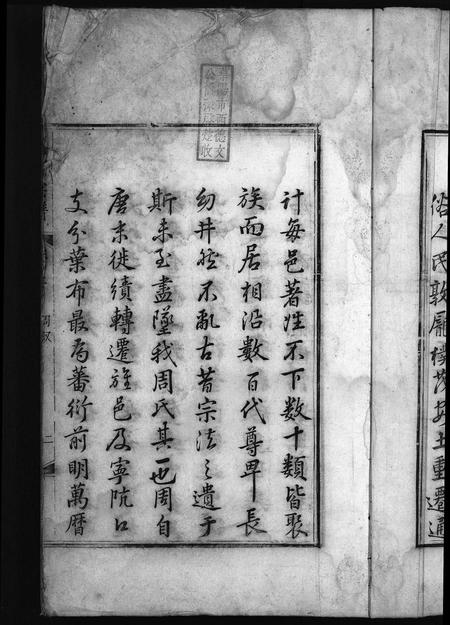 俗人民敦龐樸茂安土重遷通
計每邑著姓不下數十類皆聚
族而居相沿數百代尊卑長
幼井然不亂古昔宗法之遺于
斯未至盡墜我周氏其一也周自
唐末徙績轉遷旌邑及寧阬口
支分葉布最為蕃衍前明萬曆
二